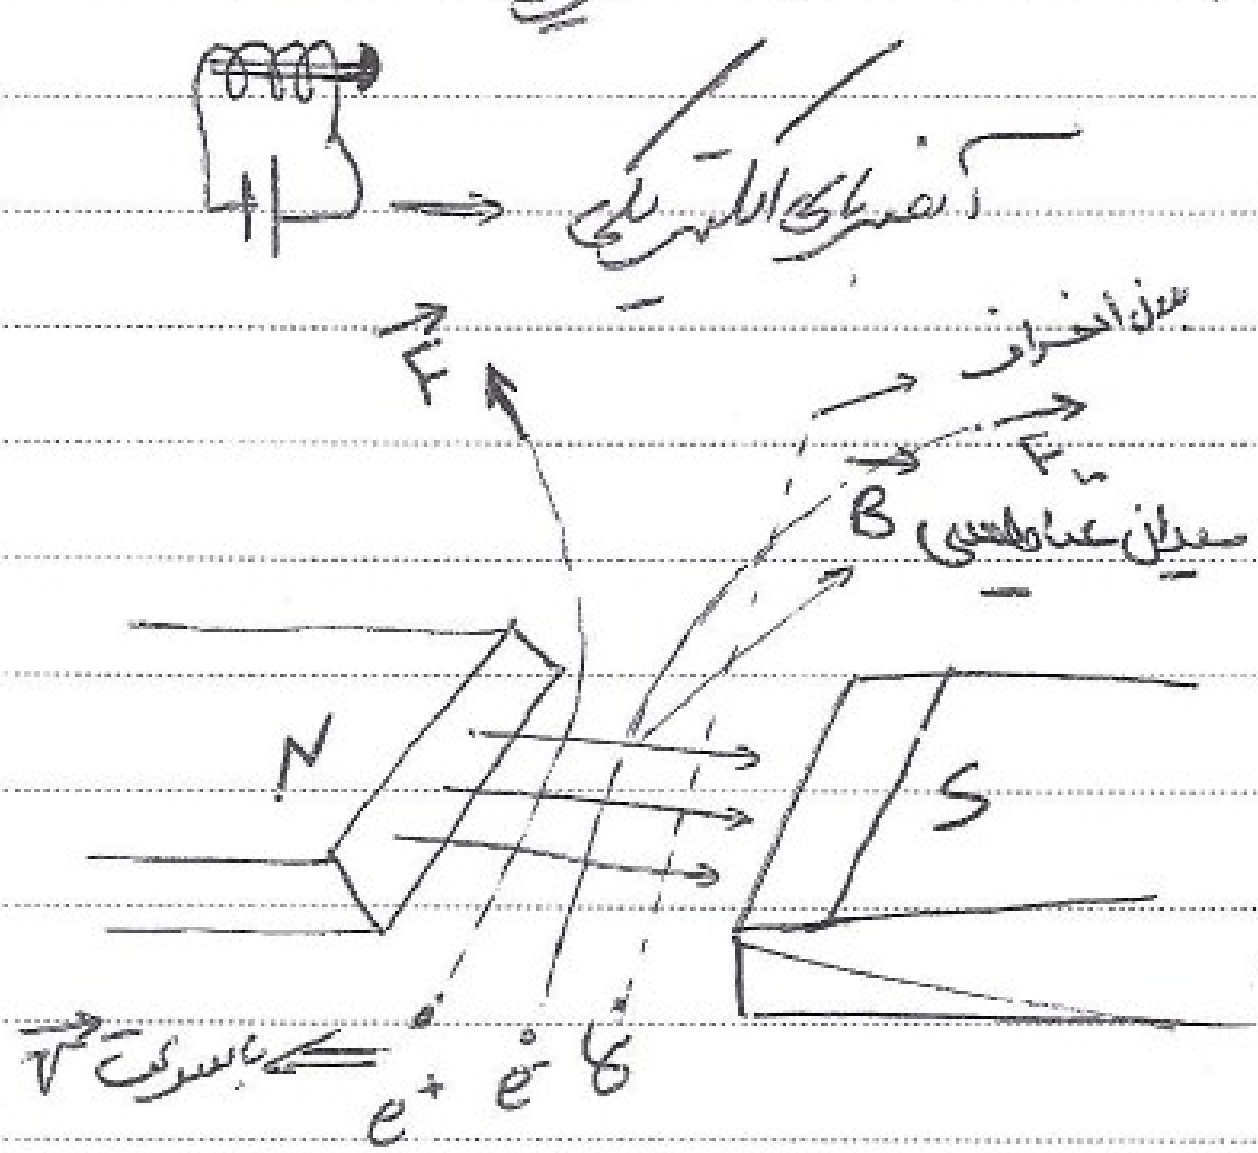 آهنربای الکتریکی
بدون انحراف
F
F
B میدان مغناطیسی
N
S
با سرعت V
e+ e- γ